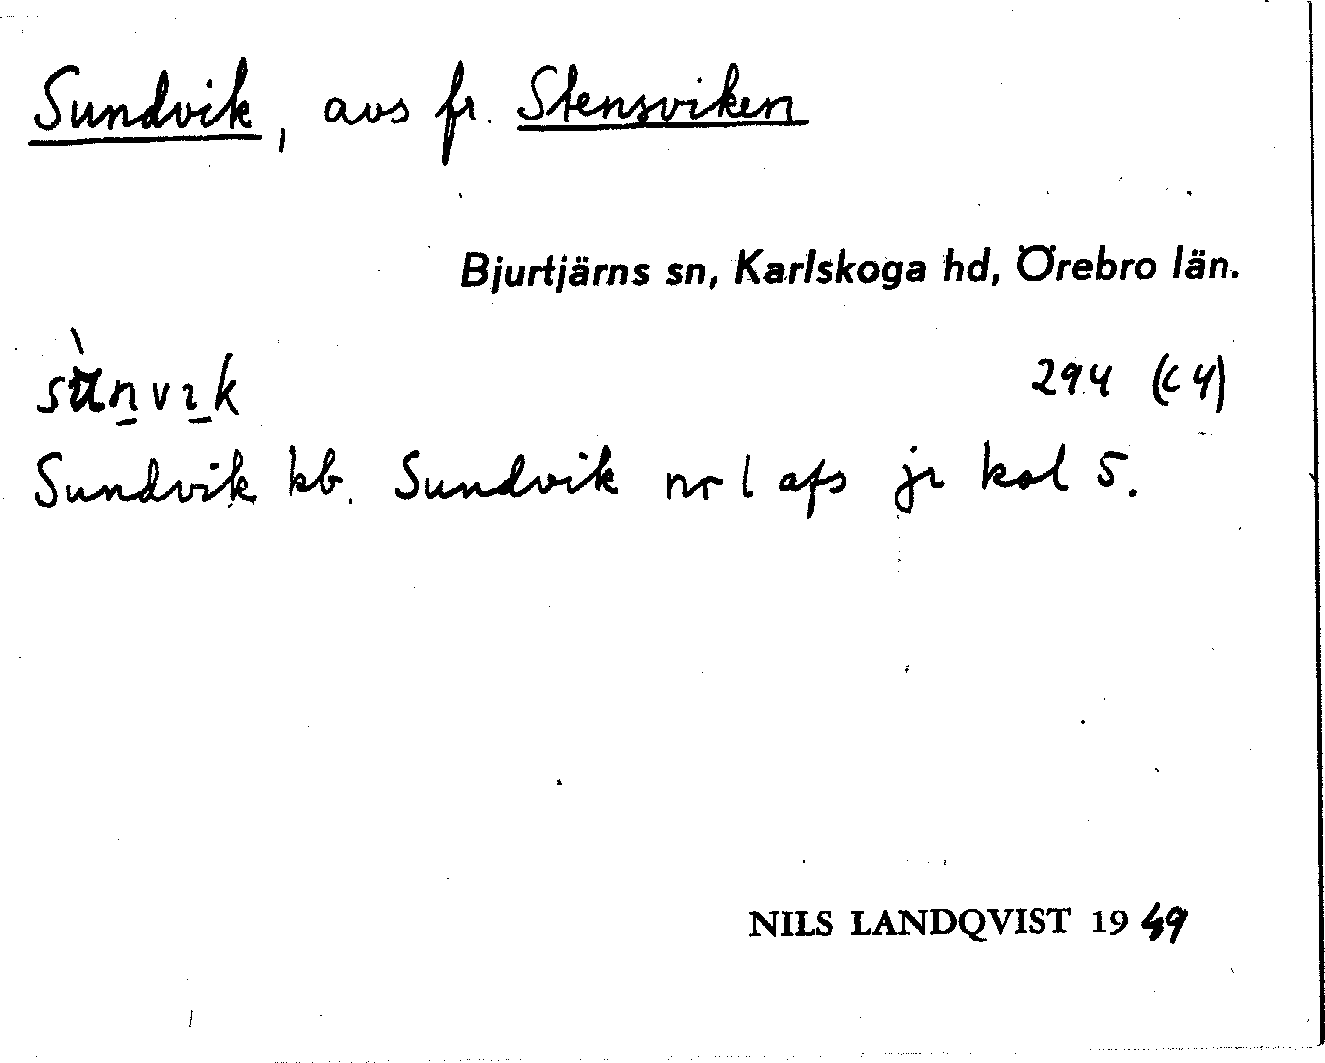 Sundvik, avs fr. Stensviken
Bjurtjärns sn, Karlskoga hd, Örebro län.
sùn̲vı̲k 294 (c 4)
Sundvik kb. Sundvik nr 1 afs jr kol 5.
NILS LANDQVIST 1949